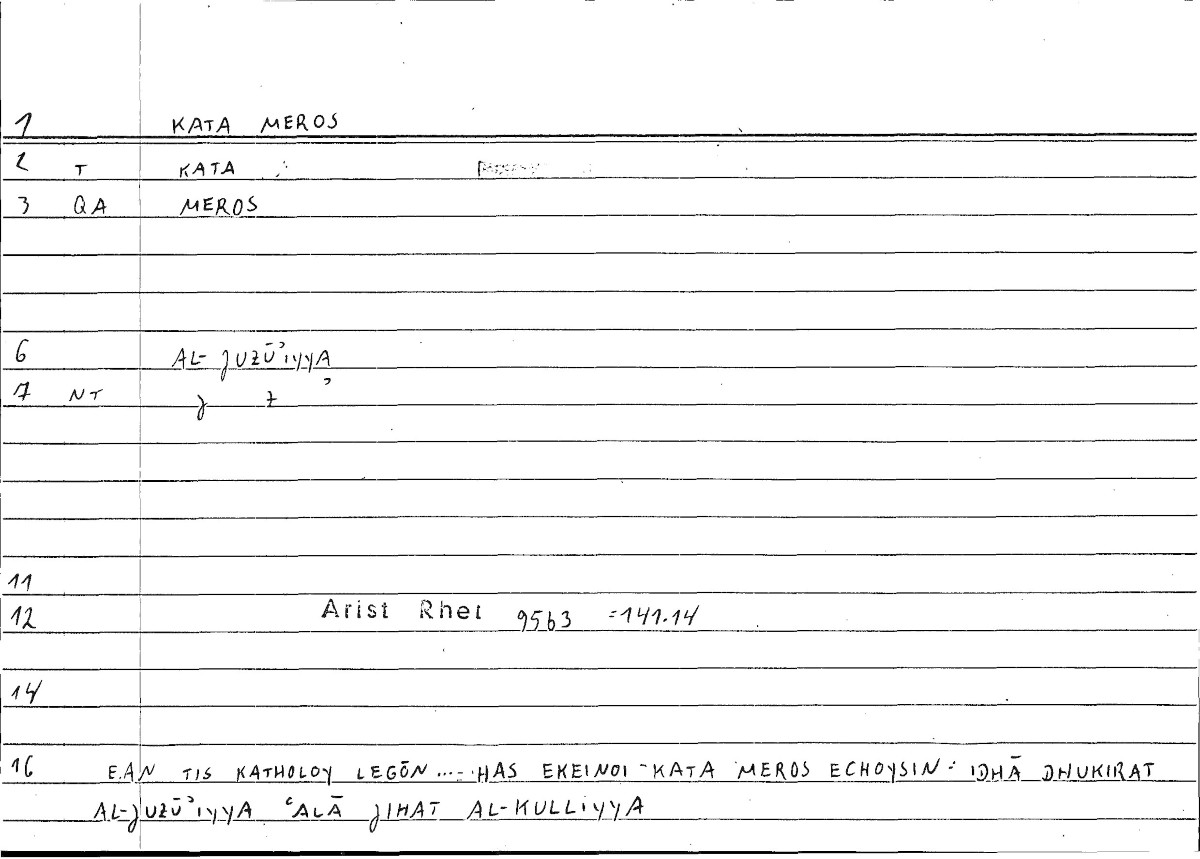 1 KATA MEROS
2 T KATA
3 QA MEROS
6 AL-JUZŪʾIYYA
7 NT J Z ʾ
11
12 Arist Rhet 95b3 =141.14
14
16 EAN TIS KATHOLOY LEGŌN ... HAS EKEINOI KATA MEROS ECHOYSIN : IDHĀ DHUKIRAT
AL-JUZŪʾIYYA ʿALĀ JIHAT AL-KULLIYYA